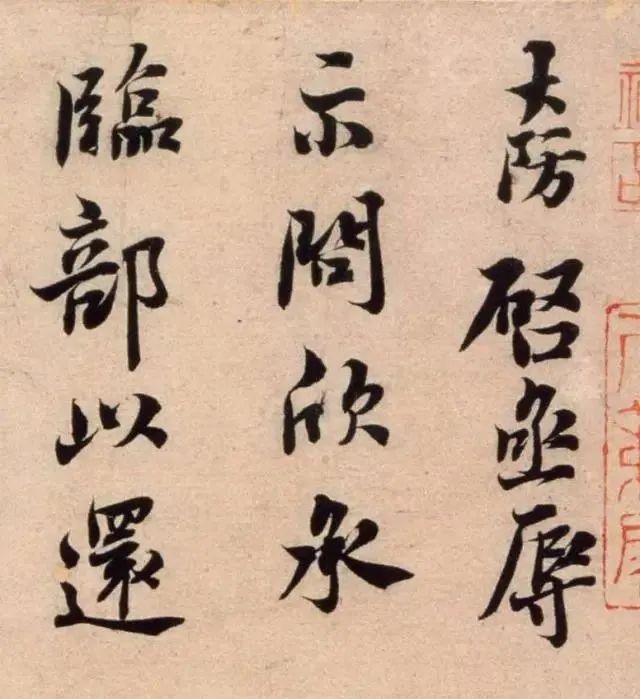 大防啓亟辱
示問欣承
臨部以還